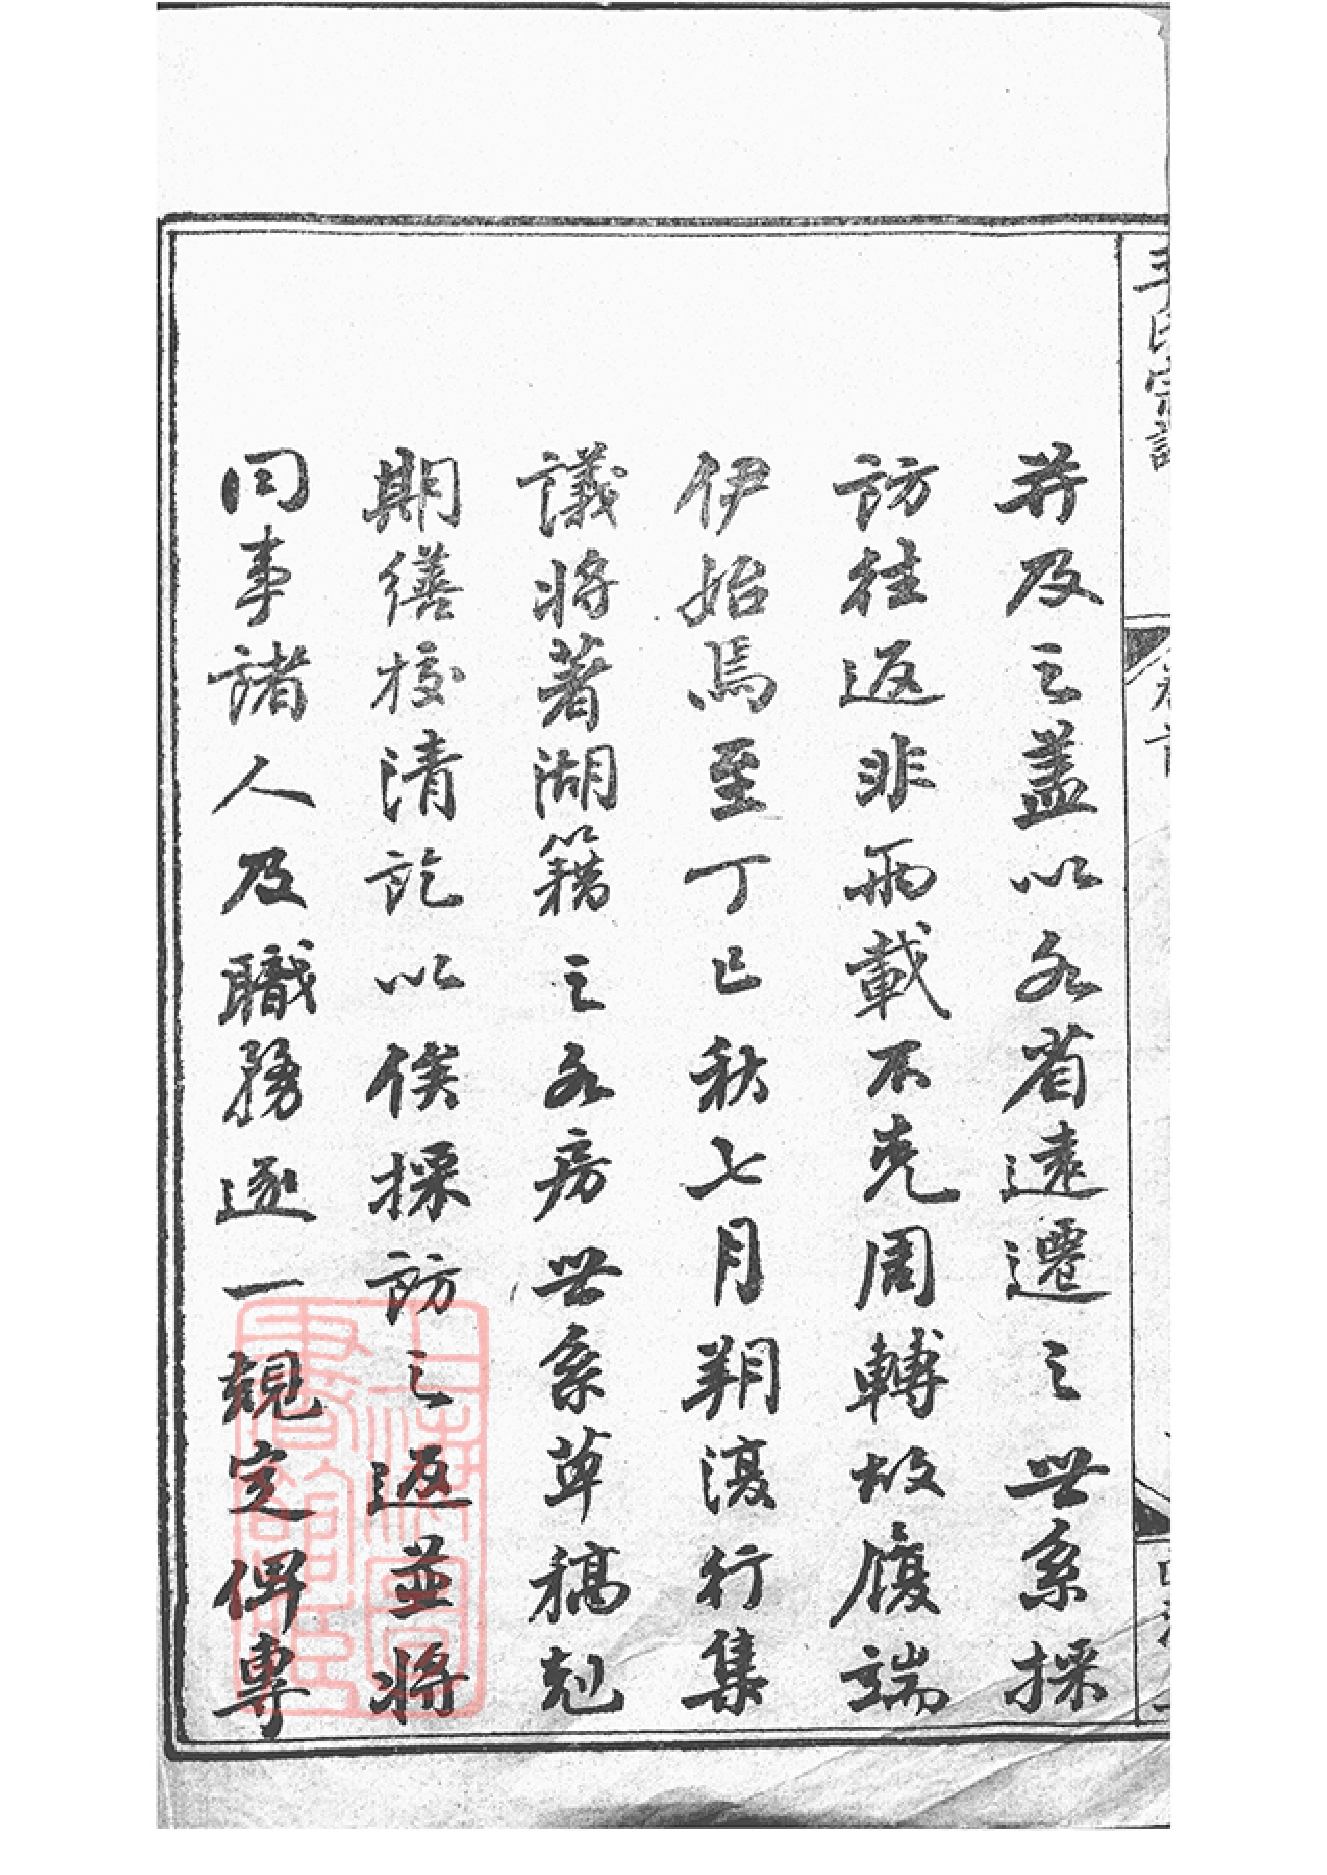 氏宗譜
卷首
并及之蓋以各省遠遷之世系採
訪往返非兩載不克周轉故履端
伊始焉至丁巳秋七月朔復行集
議將著湖籍之各房世系草稿剋
期繕校清訖以俟採訪之返並將
同事諸人及職務逐一規定俾專
上海圖
書館藏